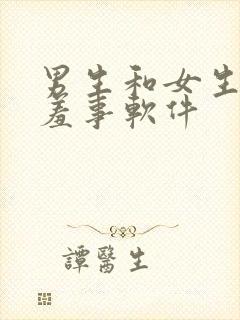 男生和女生
羞事軟件
譚醫生